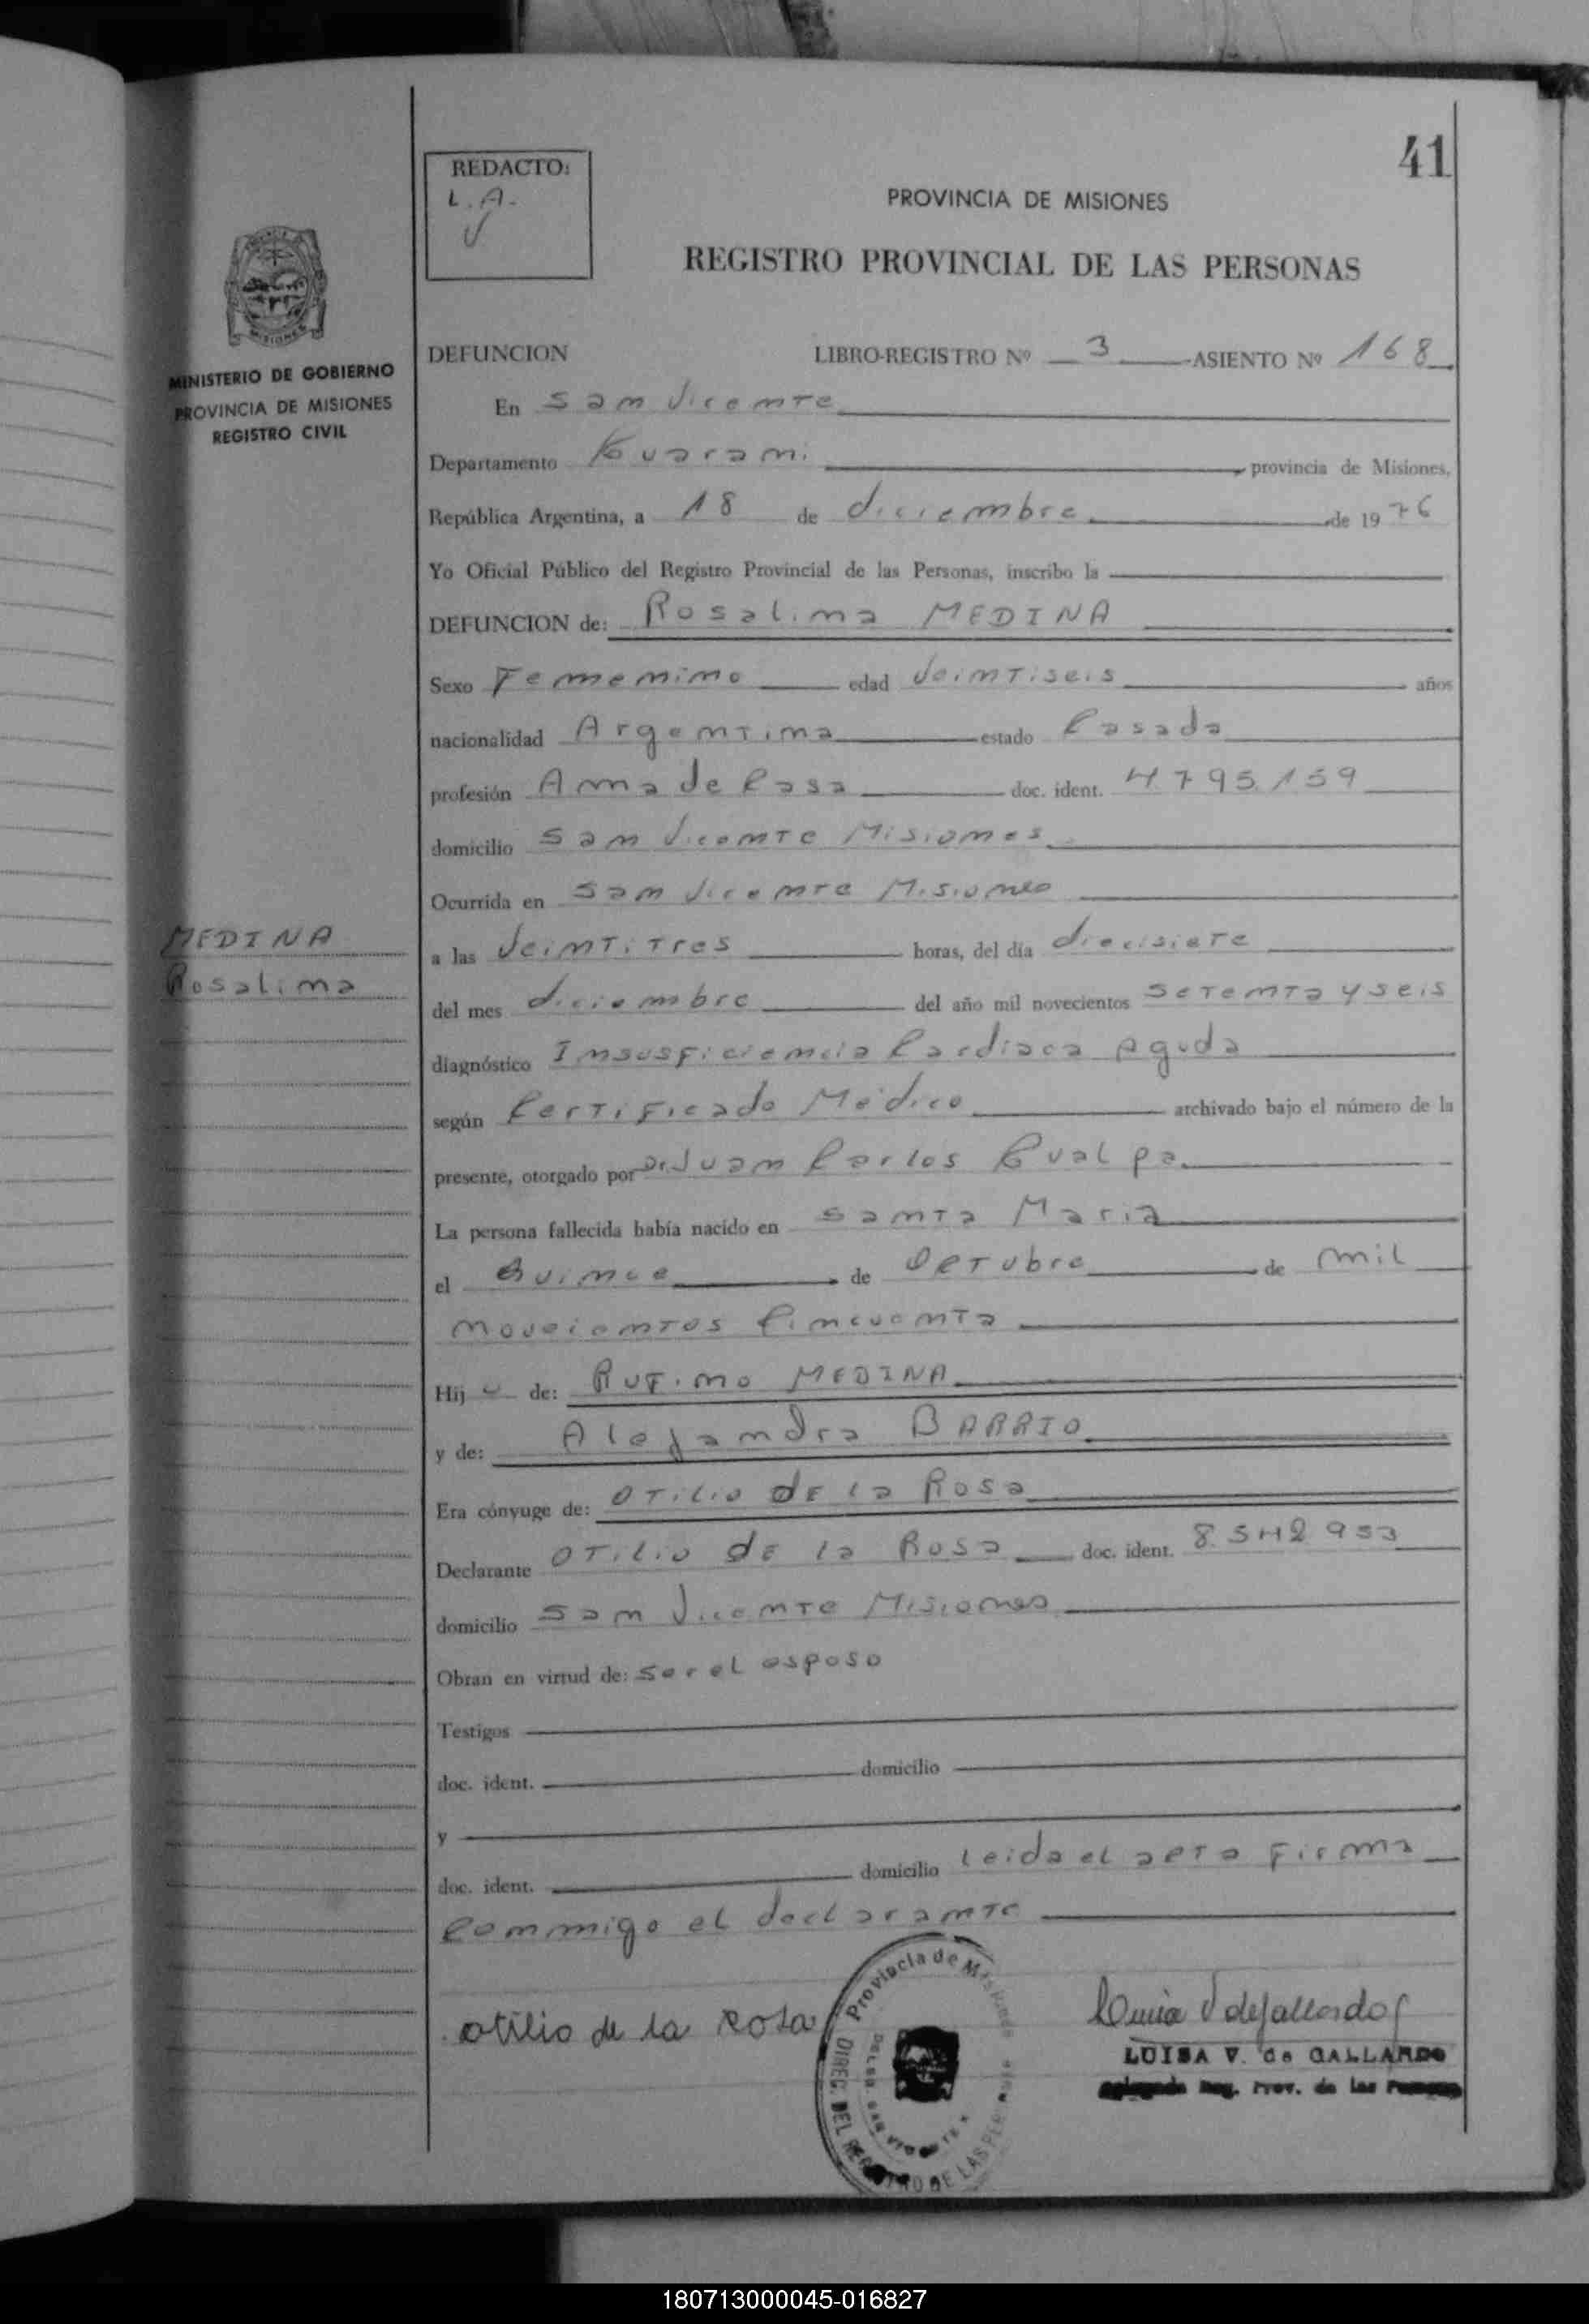 41
REDACTO:
L. A.
PROVINCIA DE MISIONES
REGISTRO PROVINCIAL DE LAS PERSONAS
MISIONES
MINISTERIO DE GOBIERNO
PROVINCIA DE MISIONES
REGISTRO CIVIL
DEFUNCION LIBRO-REGISTRO Nº 3 ASIENTO Nº 168
En San Vicente
Departamento Guarani, provincia de Misiones,
República Argentina, a 18 de diciembre de 1976
Yo Oficial Público del Registro Provincial de las Personas, inscribo la
DEFUNCION de: Rosalina MEDINA
Sexo Femenino edad Veintiseis años
nacionalidad Argentina estado Casada
profesión Ama de Casa doc. ident. 4.795.159
domicilio San Vicente Misiones
Ocurrida en San Vicente Misiones
MEDINA
Rosalina
a las Veintitres horas, del día diecisiete
del mes diciembre del año mil novecientos setenta y seis
diagnóstico Insuficiencia Cardiaca Aguda
según Certificado Médico archivado bajo el número de la
presente, otorgado por Dr. Juan Carlos Gualpa
La persona fallecida había nacido en Santa Maria
el Quince de Octubre de mil
noveientos Cincuenta
Hij a de: Rufino MEDINA
y de: Alejandra BARRIO
Era cónyuge de: Otilio DE la Rosa
Declarante Otilio DE la Rosa doc. ident. 8.542.953
domicilio San Vicente Misiones
Obran en virtud de: ser el esposo
Testigos
doc. ident. domicilio
y
doc. ident. domicilio Leida el acta firma
Conmigo el declarante
otilio de la Rosa
Provincia de Misiones
DIREC. DEL REGISTRO DE LAS PER
Luisa V de Gallardo
LUISA V. de GALLARDO
Delegada Reg. Prov. de las Personas
180713000045-016827